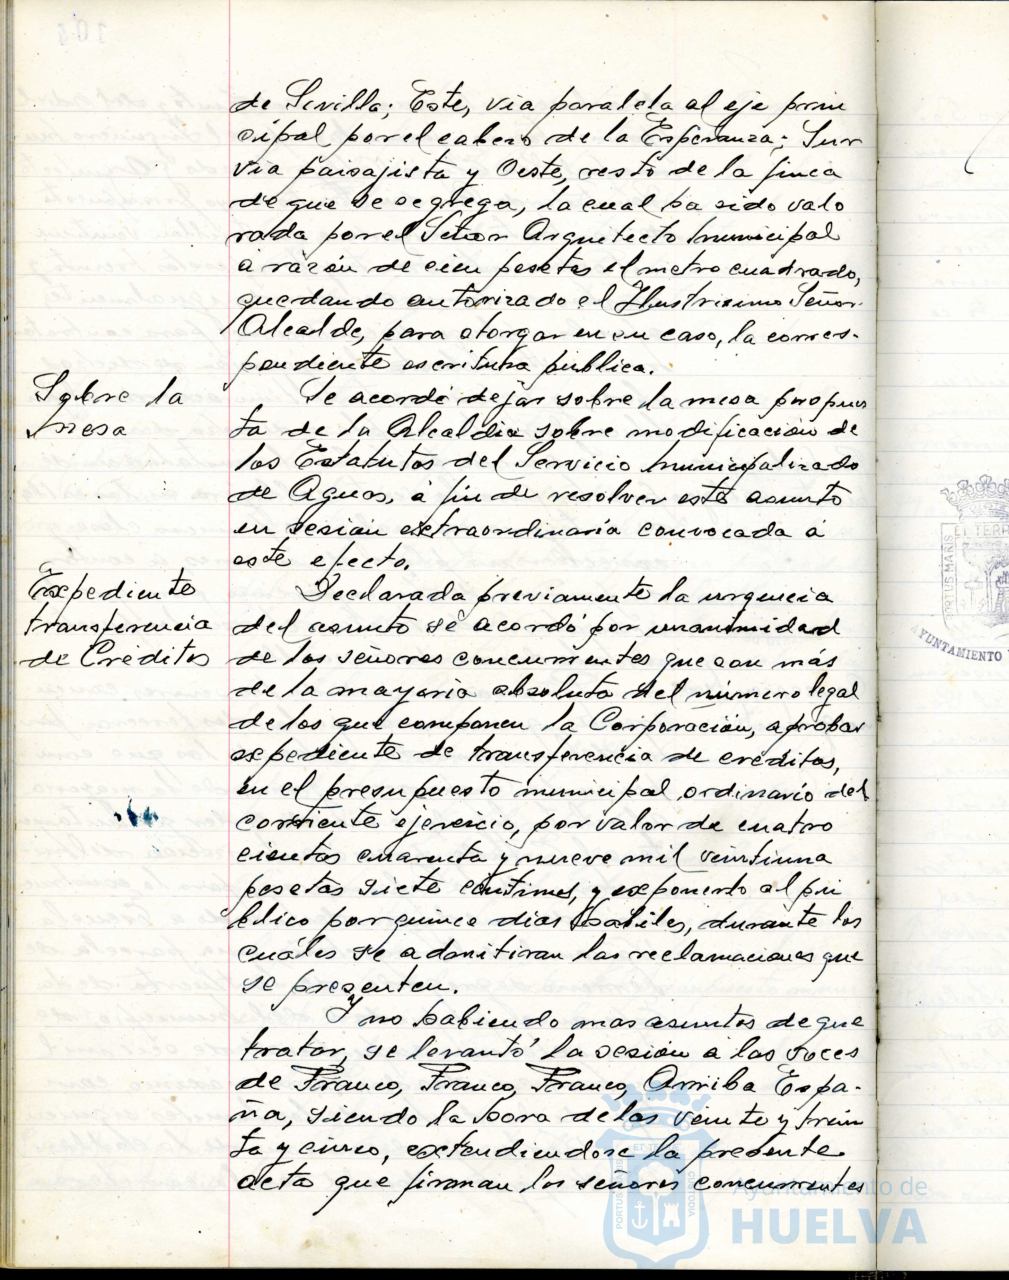 de Sevilla; Este, via paralela al eje prin
cipal por el cabezo de la Esperanza; Sur
via paisajista y Oeste, resto de la finca
de que se segrega, la cual ha sido valo
rada por el Señor Arquitecto Municipal
á razón de cien pesetas el metro cuadrado,
quedando autorizado el Ilustrisimo Señor
Alcalde, para otorgar en su caso, la corres-
pondiente escritura pública.
Sobre la
mesa
Se acordó dejar sobre la mesa propues
ta de la Alcaldia sobre modificación de
los Estatutos del Servicio Municipalizado
de Aguas, á fin de resolver este asunto
en sesión extraordinaria convocada á
este efecto.
Expediente
transferencia
de Créditos
Declarada previamente la urgencia
del asunto se acordó por unanimidad
de los señores concurrentes que son más
de la mayoria absoluta del número legal
de los que componen la Corporación, aprobar
expediente de transferencia de creditos,
en el presupuesto municipal ordinario del
corriente ejercicio, por valor de cuatro
cientos cuarenta y nueve mil veintiuna
pesetas siete céntimos, y exponerlo al pú
blico por quince dias hábiles, durante los
cuáles se admitiran las reclamaciones que
se presenten.
Y no habiendo mas asuntos de que
tratar, se levantó la sesión a las voces
de Franco, Franco, Franco, Arriba Espa-
ña, siendo la hora de las veinte y trein
ta y cinco, extendiendose la presente
acta que firman los señores concurrentes
PORTUS MARIS
EL TERR
AYUNTAMIENTO
PORTUS
ET TE
CUSTODIA
Ayuntamiento de
HUELVA